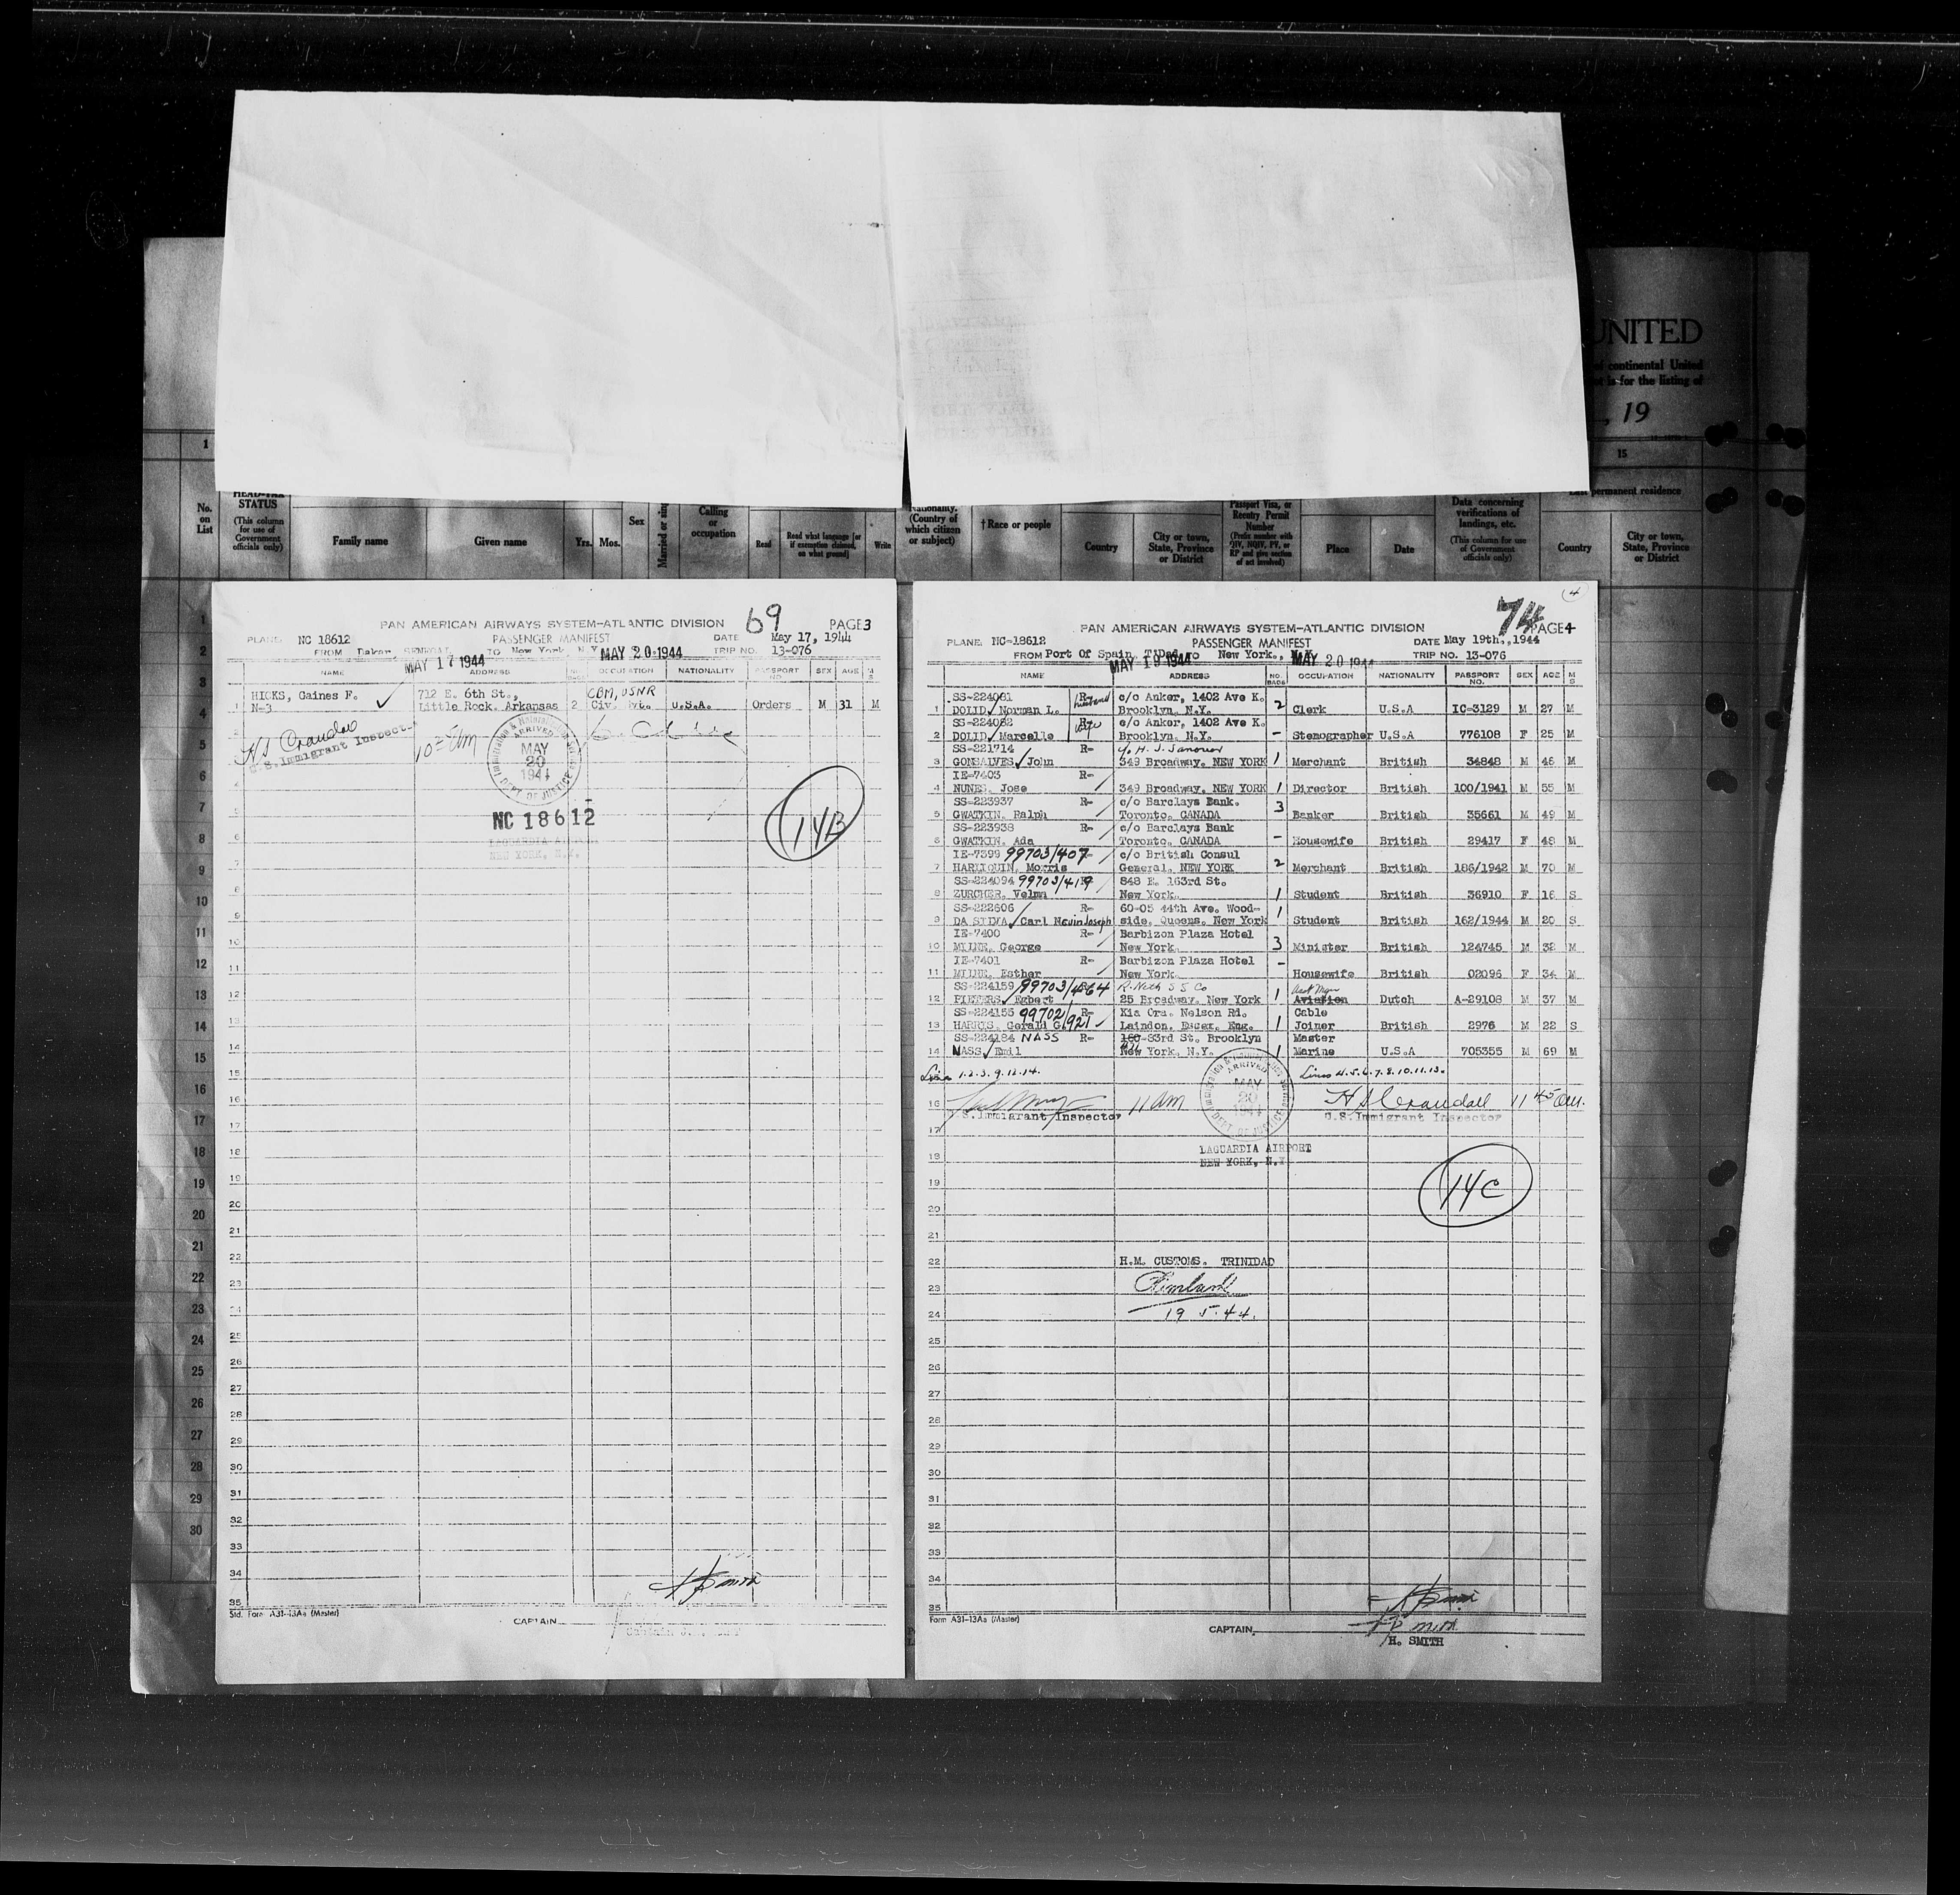 UNITED
of continental United
is for the listing of
, 19
1
15
No.
on
List
HEAD-TAX
STATUS
(This column
for use of
Government
officials only)
Family name
Given name
Yrs.
Mos.
Sex
Calling
or
occupation
Read
Read what language [or
if exemption claimed,
on what ground]
Write
Nationality.
(Country of
which citizen
or subject)
†Race or people
Country
City or town,
State, Province
or District
Passport Visa, or
Reentry Permit
Number
(Prefix number with
QIV, NQIV, PV, or
RP and give section
of act involved)
Place
Date
Data concerning
verifications of
landings, etc.
(This column for use
of Government
officials only)
permanent residence
Country
City or town,
State, Province
or District
1
2
3
4
5
6
7
8
9
10
11
12
13
14
15
16
17
18
19
20
21
22
23
24
25
26
27
28
29
30
69
PAN AMERICAN AIRWAYS SYSTEM-ATLANTIC DIVISION PAGE 3
PLANE NC 18612 PASSENGER MANIFEST DATE May 17, 1944
FROM Dakar SENEGAL TO New York N.Y. TRIP NO. 13-076
MAY 17 1944 MAY 20 1944
NAME ADDRESS NO. BAGS OCCUPATION NATIONALITY PASSPORT NO. SEX AGE M S
HICKS, Gaines F. 712 E. 6th St., CBM, USNR
1 N-3 Little Rock, Arkansas 2 Civ. U.S.A. Orders M 31 M
HS Crandall
U.S. Immigrant Inspect.
10 am
Immigration & Naturalization
ARRIVED
MAY
20
1944
DEPT. OF JUSTICE
NC 18612
LAGUARDIA AIR
NEW YORK, N.Y.
14B
6
7
8
9
10
11
12
13
14
15
16
17
18
19
20
21
22
23
24
25
26
27
28
29
30
31
32
33
34
35
Std. Form A31-13Aa (Master)
CAPTAIN
4
74
PAN AMERICAN AIRWAYS SYSTEM-ATLANTIC DIVISION PAGE 4
PLANE NC-18612 PASSENGER MANIFEST DATE May 19th., 1944
FROM Port Of Spain, T'Dad TO New York., N.Y. TRIP NO. 13-076
MAY 19 1944 MAY 20 1944
NAME ADDRESS NO. BAGS OCCUPATION NATIONALITY PASSPORT NO. SEX AGE M S
SS-224081 R- husband c/o Anker, 1402 Ave K.
1 DOLID, Norman L. Brooklyn. N.Y. 2 Clerk U.S.A IC-3129 M 27 M
SS-224082 R- wife c/o Anker, 1402 Ave K.
2 DOLID, Marcelle Brooklyn. N.Y. - Stenographer U.S.A 776108 F 25 M
SS-221714 R- c/o H. J.
3 GONSALVES, John 349 Broadway. NEW YORK 1 Merchant British 34848 M 46 M
IE-7403 R-
4 NUNES, Jose 349 Broadway. NEW YORK 1 Director British 100/1941 M 55 M
SS-223937 R- c/o Barclays Bank. 3
5 GWATKIN, Ralph Toronto, CANADA Banker British 35661 M 49 M
SS-223938 R- c/o Barclays Bank
6 GWATKIN, Ada Toronto. CANADA - Housewife British 29417 F 48 M
IE-7399 99703/407 c/o British Consul
7 HARLIQUIN, Morris General, NEW YORK 2 Merchant British 186/1942 M 70 M
SS-224094 99703/419 848 E. 163rd St.
8 ZURCHER, Velma New York. 1 Student British 36910 F 16 S
SS-222606 R- 60-05 44th Ave. Wood-
9 DA SILVA, Carl Nevin Joseph side, Queens. New York 1 Student British 162/1944 M 20 S
IE-7400 R- Barbizon Plaza Hotel
10 MILNE, George New York. 3 Minister British 124745 M 32 M
IE-7401 R- Barbizon Plaza Hotel -
11 MILNE, Esther New York. Housewife British 02096 F 34 M
SS-224159 99703/464 R. Neth S S Co Asst Mgr
12 PIETERS, Egbert 25 Broadway. New York 1 Aviation Dutch A-29108 M 37 M
SS-224155 99702/921 R- Kia Ora. Nelson Rd. Cable
13 HARRIS, Gerald G. Laindon. Essex. Eng. 1 Joiner British 2976 M 22 S
SS-224184 NASS R- 160-83rd St. Brooklyn Master
14 NASS, Emil New York. N.Y. 1 Marine U.S.A 705355 M 69 M
Lines 1.2.3.9.12.14. Lines 4.5.6.7.8.10.11.13.
15
16
11 am
H S Crandall 11 45 am.
U.S. Immigrant Inspector
U.S. Immigrant Inspector
ARRIVED
MAY
20
1944
DEPT. OF JUSTICE
17
LAGUARDIA AIRPORT
NEW YORK, N.Y
14C
18
19
20
21
22 H.M. CUSTOMS. TRINIDAD
23
24 19 5.44.
25
26
27
28
29
30
31
32
33
34
35
Form A31-13Aa (Master)
CAPTAIN
H. SMITH